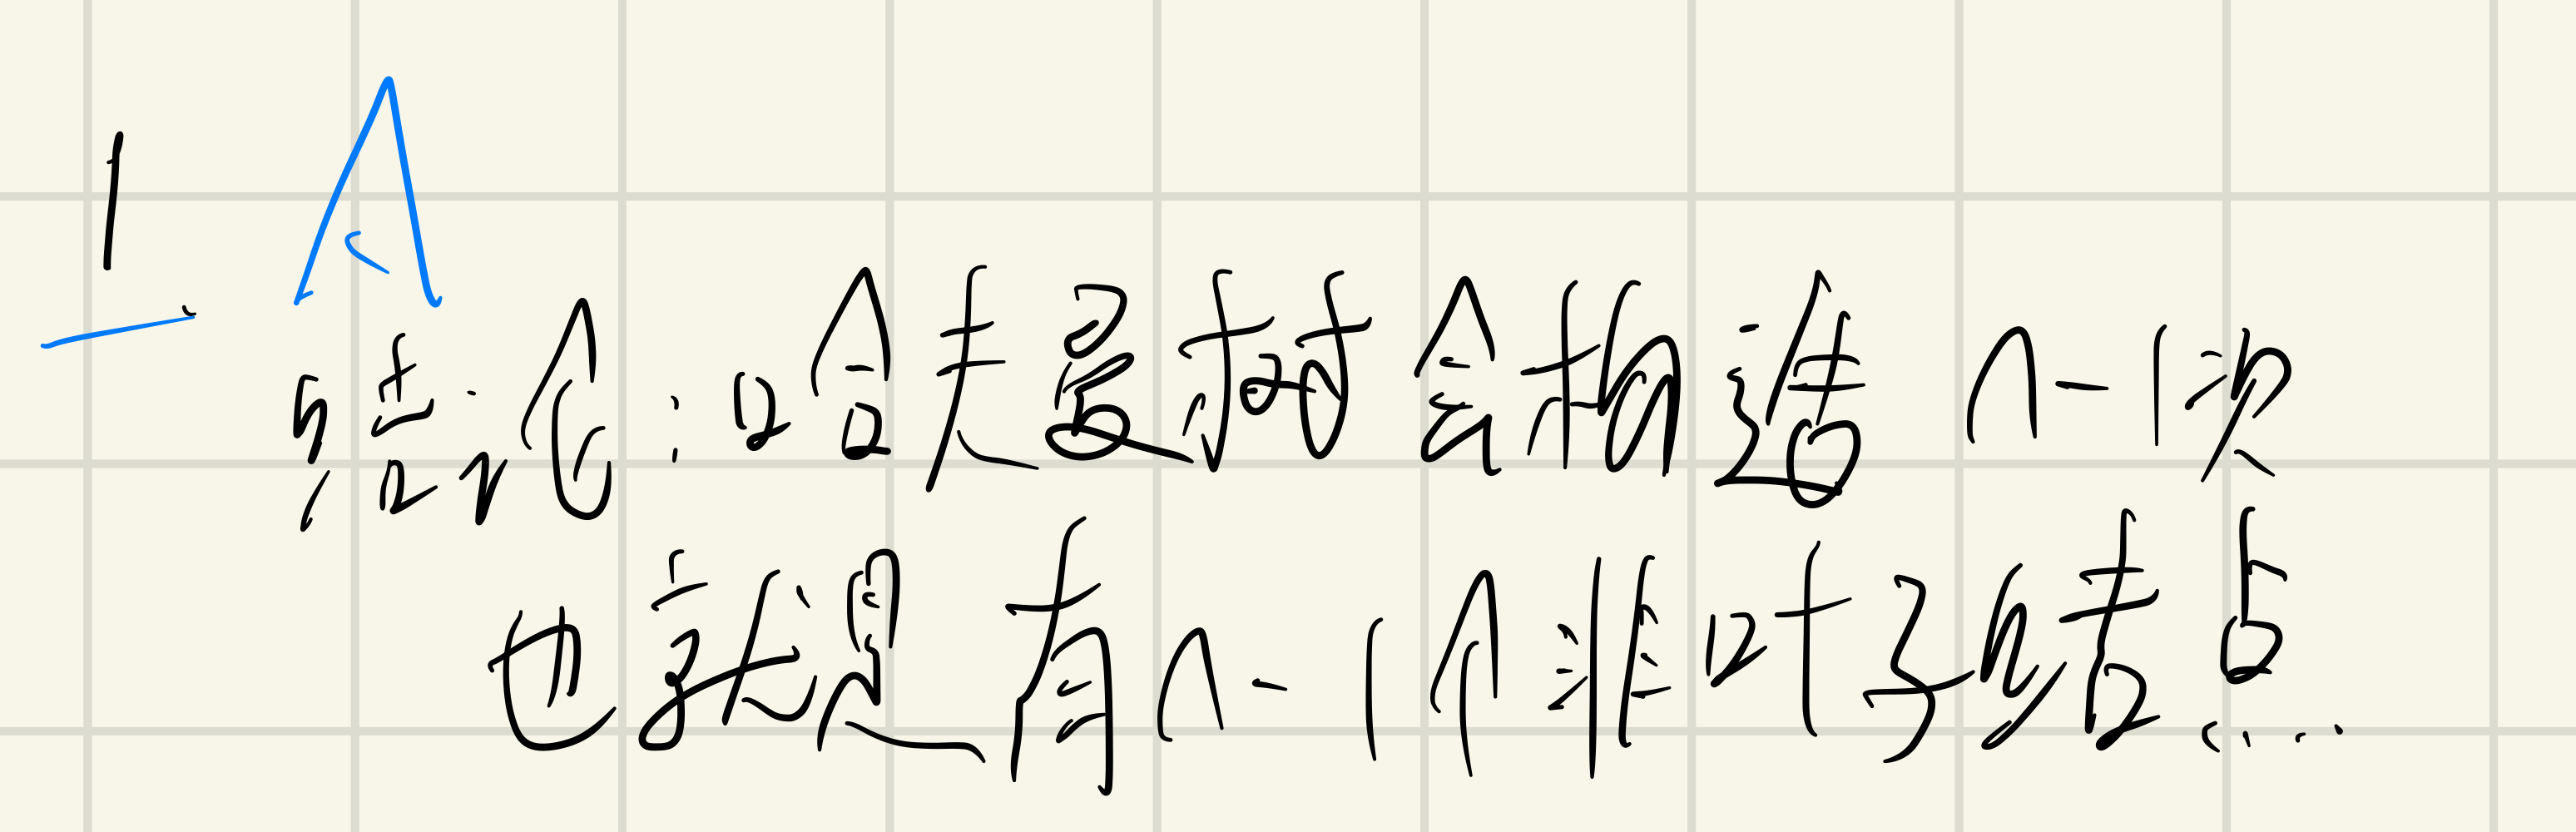 1. A
结论:哈夫曼树会构造 n-1次
也就是有n-1个非叶子结点